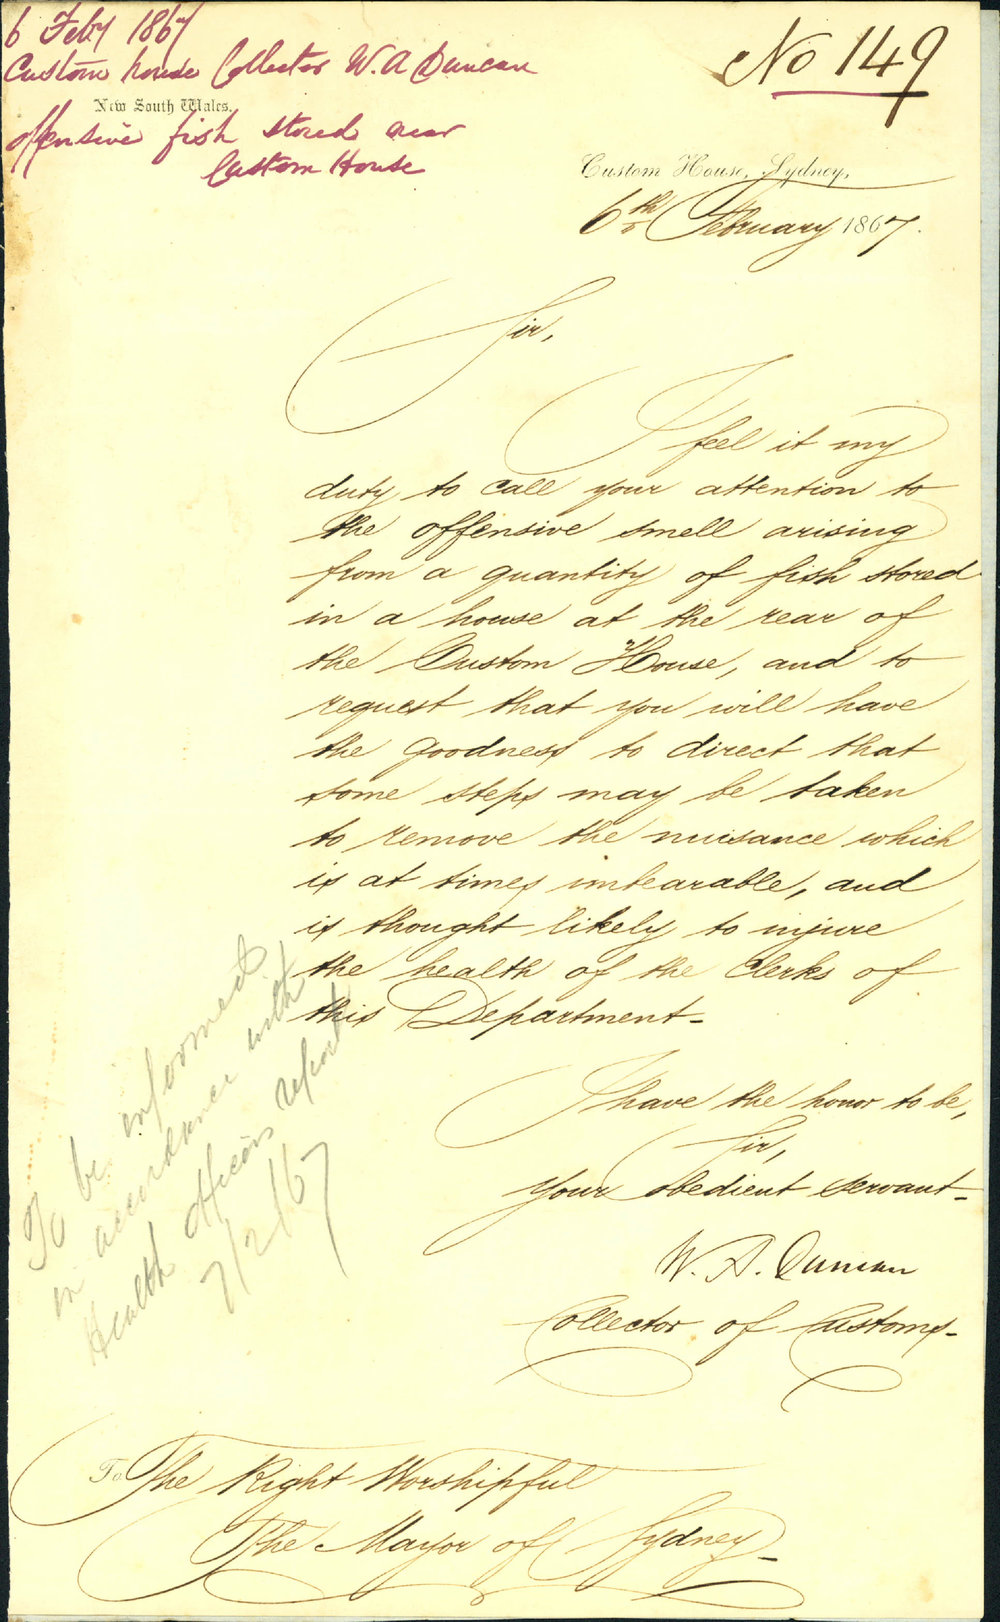 6 Feby 1867
Custom house Collector W. A Duncan
New South Wales.
offensive fish stored near
Custom House
No 149
Custom House, Sydney,
6th February 1867.
Sir,
I feel it my
duty to call your attention to
the offensive smell arising
from a quantity of fish stored
in a house at the rear of
the Custom House, and to
request that you will have
the goodness to direct that
some steps may be taken
to remove the nuisance which
is at times unbearable, and
is thought likely to injure
the health of the Clerks of
this Department.
I have the honor to be,
Sir,
Your obedient servant
W. A. Duncan
Collector of Customs
To be informed
in accordance with
Health officers report
7/2/67
To The Right Worshipful
The Mayor of Sydney